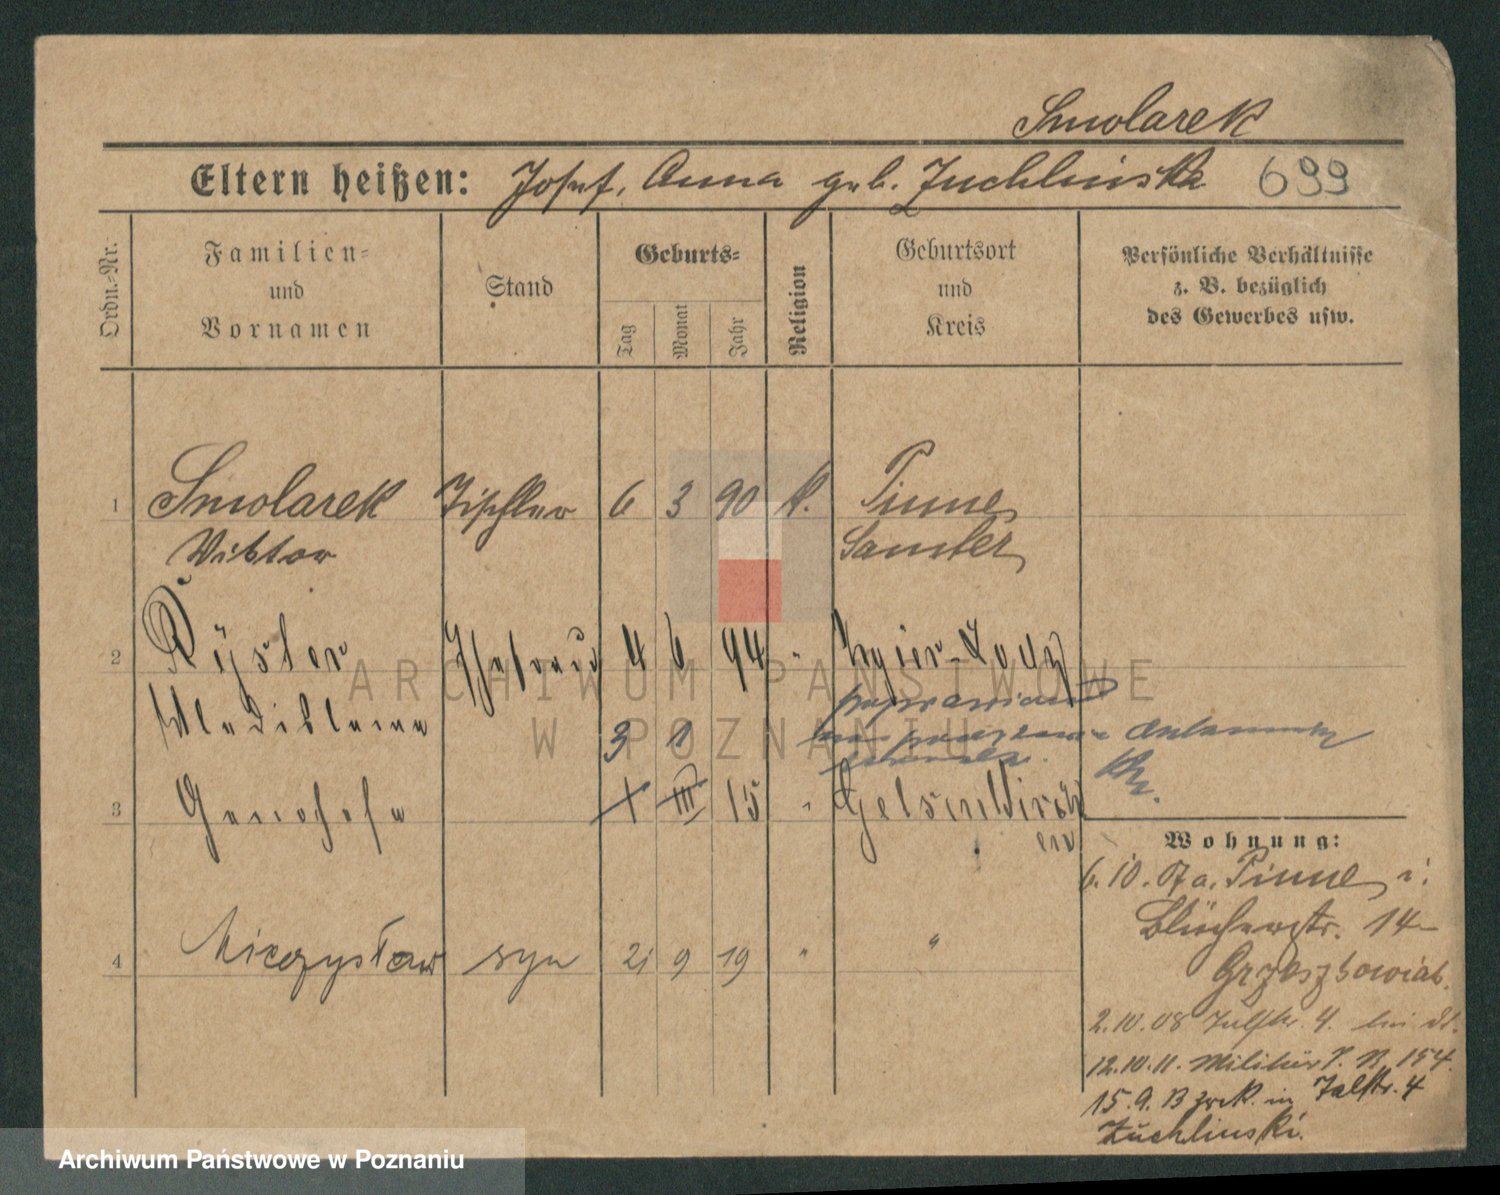 Smolarek
Eltern heißen: Josef, Anna geb. Zuchlinska 699
Ordn.-Nr.
Familien-
und
Vornamen
Stand
Geburts-
Tag
Monat
Jahr
Religion
Geburtsort
und
Kreis
Persönliche Verhältnisse
z. B. bezüglich
des Gewerbes usw.
1 Smolarek Tischler 6 3 90 k. Pinne
Viktor Samter
2 Ehefrau 4 6 94 "
Wladislawa
poprawiono
3 1
3 Genofefa 1 III 15 " Gelsenkirch
en
4 Mieczysław syn 21 9 19 " "
Wohnung:
6.10.07 a. Pinne i.
Blücherstr. 14
Grzeszkowiak.
2.10.08 4. bei
12.10.11. Militär I. R. 154
15.9.13 zrck. in Talstr. 4
Zuchlinski.
ARCHIWUM PAŃSTWOWE
W POZNANIU
Archiwum Państwowe w Poznaniu